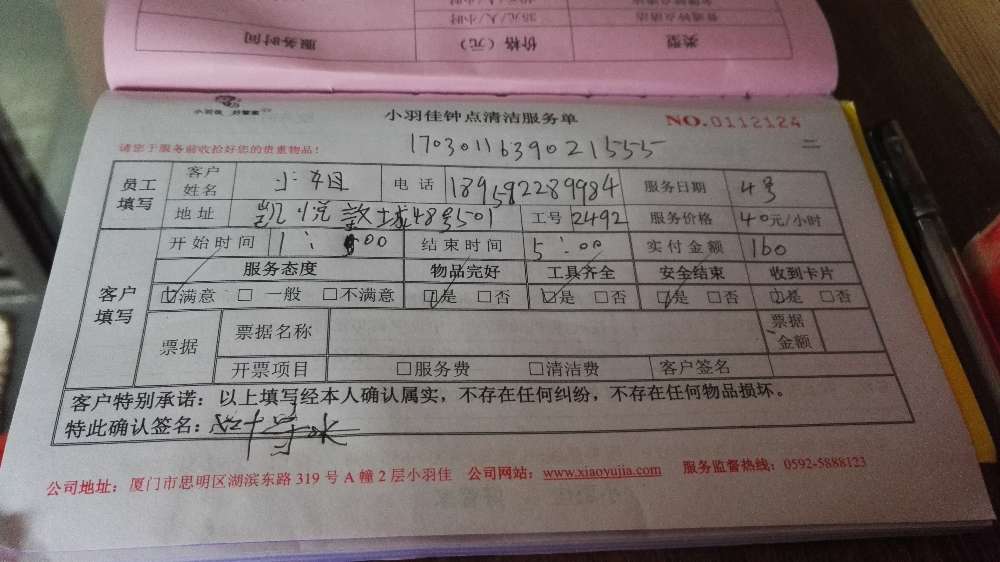 类型 价格（元） 服务时间
普通钟点清洁 35元/人/小时
小羽佳 好管家
小羽佳钟点清洁服务单 NO.0112124
请您于服务前收拾好您的贵重物品！ 1703011639021555 二
员工填写 客户姓名 小姐 电话 189592289984 服务日期 4号
地址 凯悦 48号501 工号 2492 服务价格 40元/小时
客户填写 开始时间 1：00 结束时间 5：00 实付金额 160
服务态度 物品完好 工具齐全 安全结束 收到卡片
☑满意 □一般 □不满意 ☑是 □否 ☑是 □否 ☑是 □否 ☑是 □否
票据 票据名称 票据金额
开票项目 □服务费 □清洁费 客户签名
客户特别承诺：以上填写经本人确认属实，不存在任何纠纷，不存在任何物品损坏。
特此确认签名：
公司地址：厦门市思明区湖滨东路 319 号 A 幢 2 层小羽佳 公司网站：www.xiaoyujia.com 服务监督热线：0592-5888123